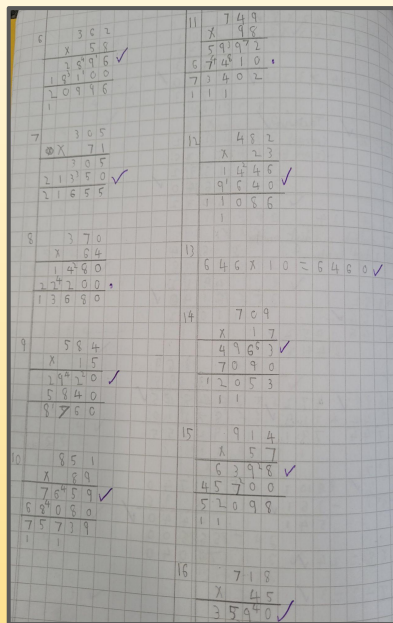 6
362
× 58
2896 ✓
18100
20996
1
7
305
× 71
305
21350 ✓
21655
8
370
× 64
1480
22200 .
13680
9
584
× 15
2920 ✓
5840
8760
10
851
× 89
7659 ✓
68080
75739
1 1
11
749
× 98
5992
67410 .
73402
1 1 1
12
482
× 23
1446 ✓
9640
11086
1
13
646 × 10 = 6460 ✓
14
709
× 17
4963 ✓
7090
12053
1 1
15
914
× 57
6398 ✓
45700
52098
1 1
16
718
× 45
3590 ✓